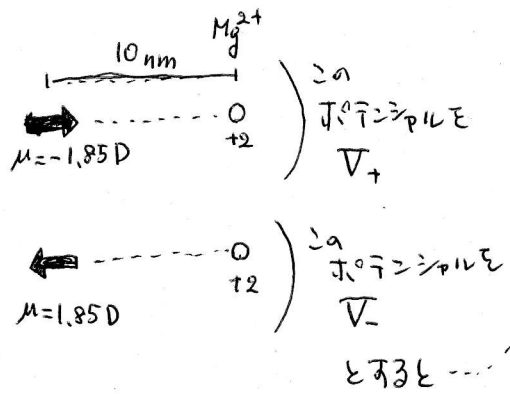 Mg²⁺
10 nm
+2
μ=-1.85D
この
ポテンシャルを
V₊
+2
μ=1.85D
この
ポテンシャルを
V₋
とすると……